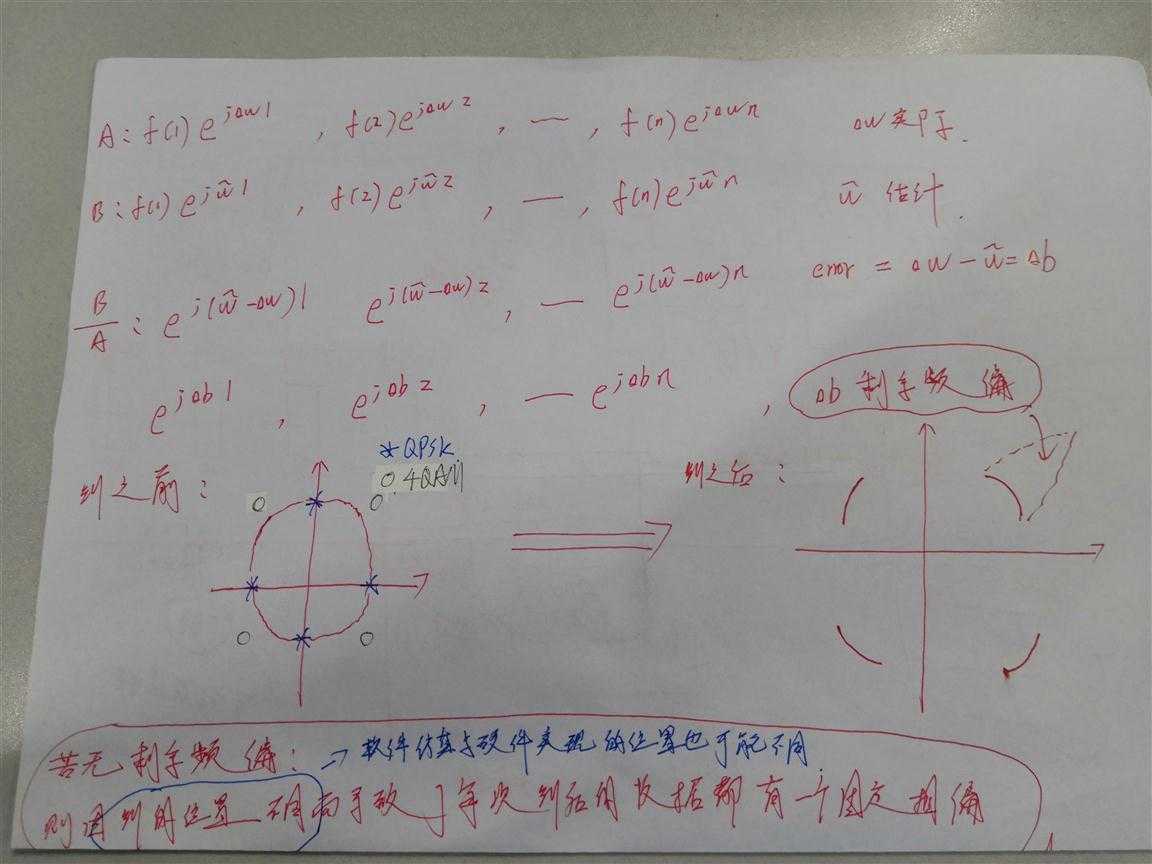 A: f(1) e^{jΔw1} , f(2) e^{jΔw2} , — , f(n) e^{jΔwn} Δw 实际.
B: f(1) e^{jŵ1} , f(2) e^{jŵ2} , — , f(n) e^{jŵn} ŵ 估计.
B/A : e^{j(ŵ-Δw)1} e^{j(ŵ-Δw)2} , — e^{j(ŵ-Δw)n} error = Δw - ŵ = Δb
e^{jΔb1} , e^{jΔb2} , — e^{jΔbn} , Δb 剩余频偏
*QPSK
○ 4QAM
纠之前: 纠之后:
若无剩余频偏: → 软件仿真与硬件实现的位置也可能不同
则因纠的位置不同而导致了每次纠后的数据都有一个固定相偏